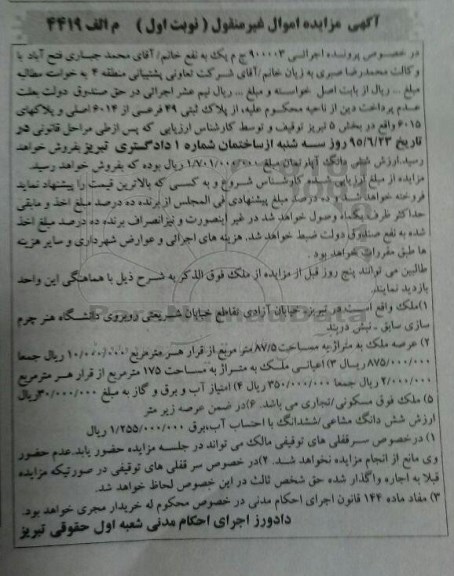 آگهی مزایده اموال غیرمنقول ( نوبت اول ) م الف ۴۴۱۹
در خصوص پرونده اجرائی ۹۰۰۰۰۳ ج م یک به نفع خانم/ آقای محمد جباری فتح آباد با
وکالت محمدرضا صبری به زیان خانم /آقای شرکت تعاونی پشتیبانی منطقه ۴ به خواسته مطالبه
مبلغ ... ریال از بابت اصل خواسته و مبلغ ... ریال نیم عشر اجرائی در حق صندوق دولت بعلت
عدم پرداخت دین از ناحیه محکوم علیه، از پلاک ثبتی ۴۹ فرعی از ۶۰۱۴ اصلی و پلاکهای
۶۰۱۵ واقع در بخش ۵ تبریز توقیف و توسط کارشناس ارزیابی که پس ازطی مراحل قانونی در
تاریخ ۹۵/۶/۲۳ روز سه شنبه ازساختمان شماره ۱ دادگستری تبریز بفروش خواهد
رسید.ارزش شش دانگ آپارتمان مبلغ ۱/۷۰۱/۰۰۰/۰۰۰ ریال بوده که بفروش خواهد رسید.
مزایده از مبلغ ارزیابی شده کارشناس شروع و به کسی که بالاترین قیمت را پیشنهاد نماید
فروخته خواهد شد و ده درصد مبلغ پیشنهادی فی المجلس از برنده ده درصد مبلغ اخذ و مابقی
حداکثر ظرف یکماه وصول خواهد شد در غیر اینصورت و نیزانصراف برنده ده درصد مبلغ اخذ
شده به نفع صندوق دولت ضبط خواهد شد. هزینه های اجرائی و عوارض شهرداری و سایر هزینه
ها طبق مقررات خواهد بود .
طالبین می توانند پنج روز قبل از مزایده از ملک فوق الذکر به شرح ذیل با هماهنگی این واحد
بازدید نمایند.
۱)ملک واقع است در تبریز، خیابان آزادی تقاطع خیابان شریعتی روبروی دانشگاه هنر چرم
سازی سابق ـ نبش دربند
۲) عرصه ملک به متراژ به مساحت ۸۷/۵ متر مربع از قرار هـر مترمربع ۱۰/۰۰۰/۰۰۰ ریال جمعا
۸۷۵/۰۰۰/۰۰۰ریال ۳) اعیانی ملک به متراژ به مساحت ۱۷۵ مترمربع از قرار هر مترمربع
۲/۰۰۰/۰۰۰ ریال جمعا ۳۵۰/۰۰۰/۰۰۰ ریال ۴) امتیاز آب و برق و گاز به مبلغ ۳۰/۰۰۰/۰۰۰ریال
۵) ملک فوق مسکونی/تجاری می باشد. ۶)در ضمن عرصه زیر متر
ارزش شش دانگ مشاعی/ششدانگ با احتساب آب،برق ۱/۲۵۵/۰۰۰/۰۰۰ ریال
۱) درخصوص سرقفلی های توقیفی مالک می تواند در جلسه مزایده حضور یابد.عدم حضور
وی مانع از انجام مزایده نخواهد شد. ۲)در خصوص سر قفلی های توقیفی در صورتیکه مزایده
قبلا به اجاره واگذار شده حق شخص ثالث در این خصوص لحاظ خواهد شد.
۳) مفاد ماده ۱۴۴ قانون اجرای احکام مدنی در خصوص محکوم له خریدار مجری خواهد بود.
دادورز اجرای احکام مدنی شعبه اول حقوقی تبریز